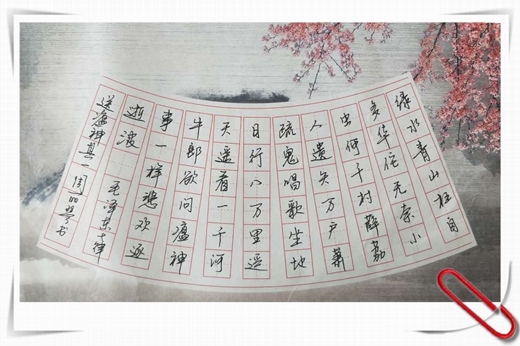 绿水青山枉自
多华佗无奈小
虫何千村薜荔
人遗矢万户萧
疏鬼唱歌坐地
日行八万里巡
天遥看一千河
牛郎欲问瘟神
事一样悲欢逐
逝波 毛泽东七律
送瘟神其一 周书